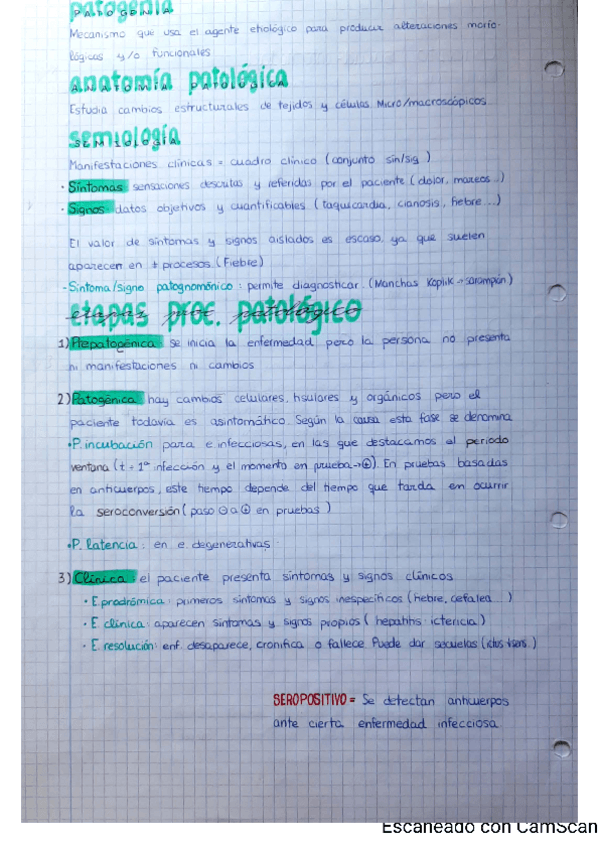 patogenia
PATOGENIA
Mecanismo que usa el agente etiológico para producir alteraciones morfo-
lógicas y/o funcionales
anatomía patológica
ANATOMÍA PATOLÓGICA
Estudia cambios estructurales de tejidos y células Micro/macroscópicos
semiología
SEMIOLOGÍA
Manifestaciones clínicas = cuadro clínico (conjunto sín/sig)
· Síntomas sensaciones descritas y referidas por el paciente (dolor, mareos...)
· Signos datos objetivos y cuantificables (taquicardia, cianosis, fiebre...)
El valor de síntomas y signos aislados es escaso, ya que suelen
aparecen en ≠ procesos. (Fiebre)
- Síntoma/Signo patognomónico: permite diagnosticar. (Manchas Koplik → sarampión)
etapas proc. patológico
etapas proc. patológico
1) Prepatogénica: se inicia la enfermedad pero la persona no presenta
ni manifestaciones ni cambios
2) Patogénica: hay cambios celulares, tisulares y orgánicos pero el
paciente todavía es asintomático. Según la causa esta fase se denomina
· P. incubación para e infecciosas, en las que destacamos el periodo
ventana (t = 1ª infección y el momento en prueba → ⊕). En pruebas basadas
en anticuerpos, este tiempo depende del tiempo que tarda en ocurrir
la seroconversión (paso ⊖ a ⊕ en pruebas)
· P. latencia: en e. degenerativas
3) Clínica: el paciente presenta síntomas y signos clínicos
· E. prodrómica: primeros síntomas y signos inespecíficos (fiebre, cefalea...)
· E clínica: aparecen síntomas y signos propios (hepatitis: ictericia)
· E. resolución: enf. desaparece, cronifica o fallece. Puede dar secuelas (ictus:
SEROPOSITIVO = Se detectan anticuerpos
ante cierta enfermedad infecciosa
Escaneado con CamScan